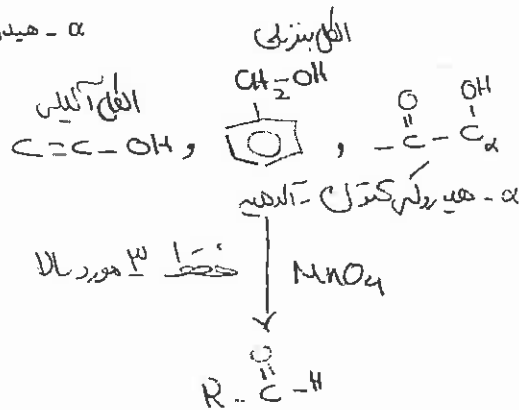 α - هید
الکل بنزیلی
CH₂-OH
الکل آلیلی
C=C-OH ,
, -C(=O)-C_α-OH
α - هیدروکسی کتون - آلدهید
فقط ۳ مورد بالا
MnO₄
R-C(=O)-H